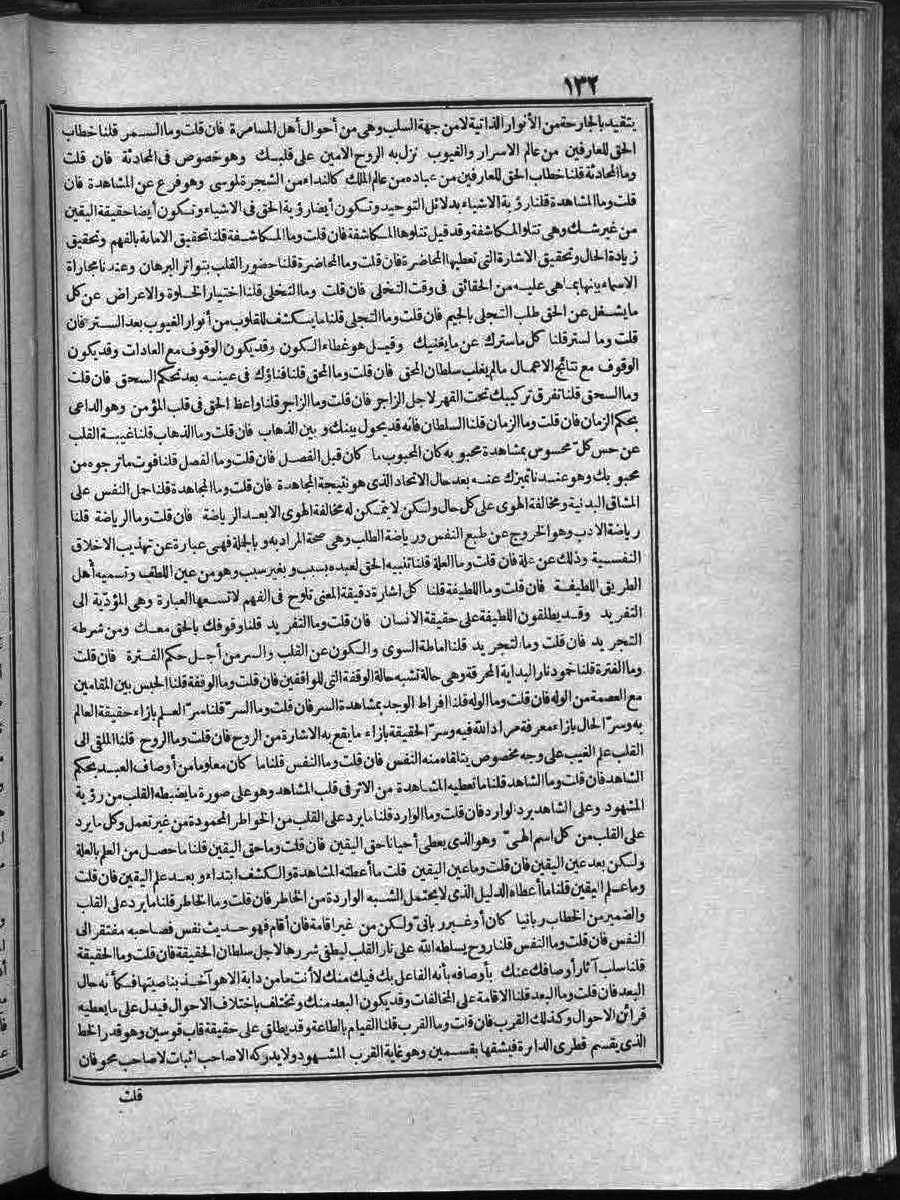 ١٣٢
يتقيد بالجارحة من الأنوار الذاتية لا من جهة السلب وهى من أحوال أهل المسامرة فان قلت وما السمر قلنا خطاب
الحق للعارفين من عالم الاسرار والغيوب نزل به الروح الامين على قلبك وهو خصوص فى المحادثة فان قلت
وما المحادثة قلنا خطاب الحق للعارفين من عباده من عالم الملك كالنداء من الشجرة لموسى وهو فرع عن المشاهدة فان
قلت وما المشاهدة قلنا رؤية الاشياء بدلائل التوحيد وتكون أيضا رؤية الحق فى الاشياء وتكون أيضا حقيقة اليقين
من غير شك وهى تتلو المكاشفة وقد قيل تتلوها المكاشفة فان قلت وما المكاشفة قلنا تحقيق الامانة بالفهم وتحقيق
زيادة الحال وتحقيق الاشارة التى تعطيها المحاضرة فان قلت وما المحاضرة قلنا حضور القلب بتواتر البرهان وعندنا مجاراة
الاسماء بينها بما هى عليه من الحقائق فى وقت التخلى فان قلت وما التخلى قلنا اختيار الخلوة والاعراض عن كل
ما يشغل عن الحق طلب التجلى بالجيم فان قلت وما التجلى قلنا ما ينكشف للقلوب من أنوار الغيوب بعد الستر فان
قلت وما لستر قلنا كل ما سترك عن ما يغنيك وقيل هو غطاء الكون وقد يكون الوقوف مع العادات وقد يكون
الوقوف مع نتائج الاعمال مالم يغلب سلطان المحق فان قلت وما المحق قلنا فناؤك فى عينه بعد تحكم السحق فان قلت
وما السحق قلنا تفرق تركيبك تحت القهر لاجل الزاجر فان قلت وما الزاجر قلنا واعظ الحق فى قلب المؤمن وهو الداعى
بحكم الزمان فان قلت وما الزمان قلنا السلطان فانه قد يحول بينك و بين الذهاب فان قلت وما الذهاب قلنا غيبة القلب
عن حس كل محسوس بمشاهدة محبو به كان المحبوب ما كان قبل الفصل فان قلت وما الفصل قلنا فوت ما ترجوه من
محبو بك وهو عندنا تميزك عنه بعد حال الاتحاد الذى هو نتيجة المجاهدة فان قلت وما المجاهدة قلنا حمل النفس على
المشاق البدنية ومخالفة الهوى على كل حال ولكن لا يتمكن له مخالفة الهوى الا بعد الرياضة فان قلت وما الرياضة قلنا
رياضة الادب وهو الخروج عن طبع النفس ورياضة الطلب وهى صحة المراد به و بالجلة فهى عبارة عن تهذيب الاخلاق
النفسية وذلك عن علة فان قلت وما العلة قلنا تنبيه الحق لعبده بسبب و بغير سبب وهو من عين اللطف وتسميه أهل
الطريق اللطيفة فان قلت وما اللطيفة قلنا كل اشارة دقيقة المعنى تلوح فى الفهم لا تسعها العبارة وهى المؤدّية الى
التفريد وقد يطلقون اللطيفة على حقيقة الانسان فان قلت وما التفريد قلنا وقوفك بالحق معك ومن شرطه
التجريد فان قلت وما التجريد قلنا اماطة السوى والكون عن القلب والسر من أجل حكم الفترة فان قلت
وما الفترة قلنا خود نار البداية المحرقة وهى حالة تشبه حالة الوقفة التى للواقفين فان قلت وما الوقفة قلنا الحبس بين المقامين
مع العصمة من الوله فان قلت وما الوله قلنا افراط الوجد بمشاهدة السر فان قلت وما السرّ قلنا سرّ العلم بازاء حقيقة العالم
به وسرّ الحال بازاء معرفة مراد الله فيه وسرّ الحقيقة بازاء ما يقع به الاشارة من الروح فان قلت وما الروح قلنا الملقى الى
القلب علم الغيب على وجه مخصوص يتلقاه منه النفس فان قلت وما النفس قلنا ما كان معلوما من أوصاف العبد بحكم
الشاهد فان قلت وما الشاهد قلنا ما تعطيه المشاهدة من الاثر فى قلب المشاهد وهو على صورة ما يضبطه القلب من رؤية
المشهود وعلى الشاهد يرد لوارد فان قلت وما الوارد قلنا ما يرد على القلب من الخواطر المحمودة من غير تعمل وكل ما يرد
على القلب من كل اسم الهىّ وهو الذى يعطى أحيانا حق اليقين فان قلت وما حق اليقين قلنا ما حصل من العلم بالعلة
ولكن بعد عين اليقين فان قلت وما عين اليقين قلت ما أعطته المشاهدة والكشف ابتداء و بعد علم اليقين فان قلت
وما علم اليقين قلنا ما أعطاه الدليل الذى لا يحتمل الشبه الواردة من الخاطر فان قلت وما الخاطر قلنا ما يرد على القلب
والضمير من الخطاب ربانيا كان أو غير ربانىّ ولكن من غير اقامة فان أقام فهو حديث نفس فصاحبه مفتقر الى
النفس فان قلت وما النفس قلنا روح يسلطه الله على نار القلب ليطفى شررها لاجل سلطان الحقيقة فان قلت وما الحقيقة
قلنا سلب آثار أوصافك عنك بأوصافه بأنه الفاعل بك فيك منك لا أنت ما من دابة الا هو آخذ بناصيتها فكأنه حال
البعد فان قلت وما البعد قلنا الاقامة على المخالفات وقد يكون البعد منك وتختلف باختلاف الاحوال فيدل على ما يعطيه
قرائن الاحوال وكذلك القرب فان قلت وما القرب قلنا القيام بالطاعة وقد يطلق على حقيقة قاب قوسين وهو قدر الخط
الذى يقسم قطرى الدائرة فيشقها بقسمين وهو غاية القرب المشهود ولا يدركه الا صاحب اثبات لا صاحب محو فان
قلت